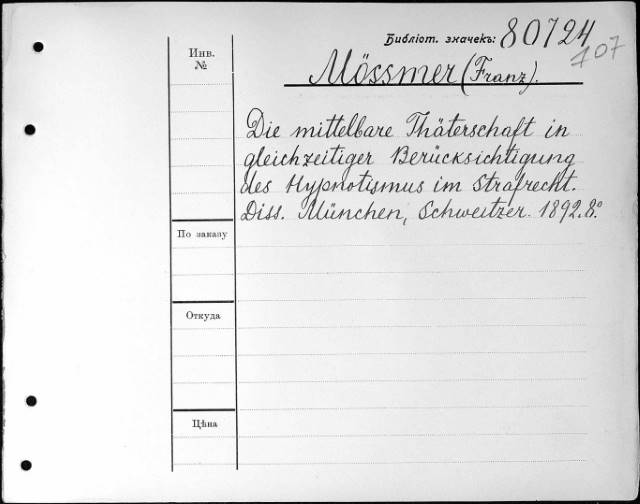 Библіот. значекъ: 80724
407
Инв.
№
Mössmer (Franz).
Die mittelbare Thäterschaft in
gleichzeitiger Berücksichtigung
des Hypnotismus im Strafrecht.
Diss. München, Schweitzer. 1892. 8.°
По заказу
Откуда
Цѣна